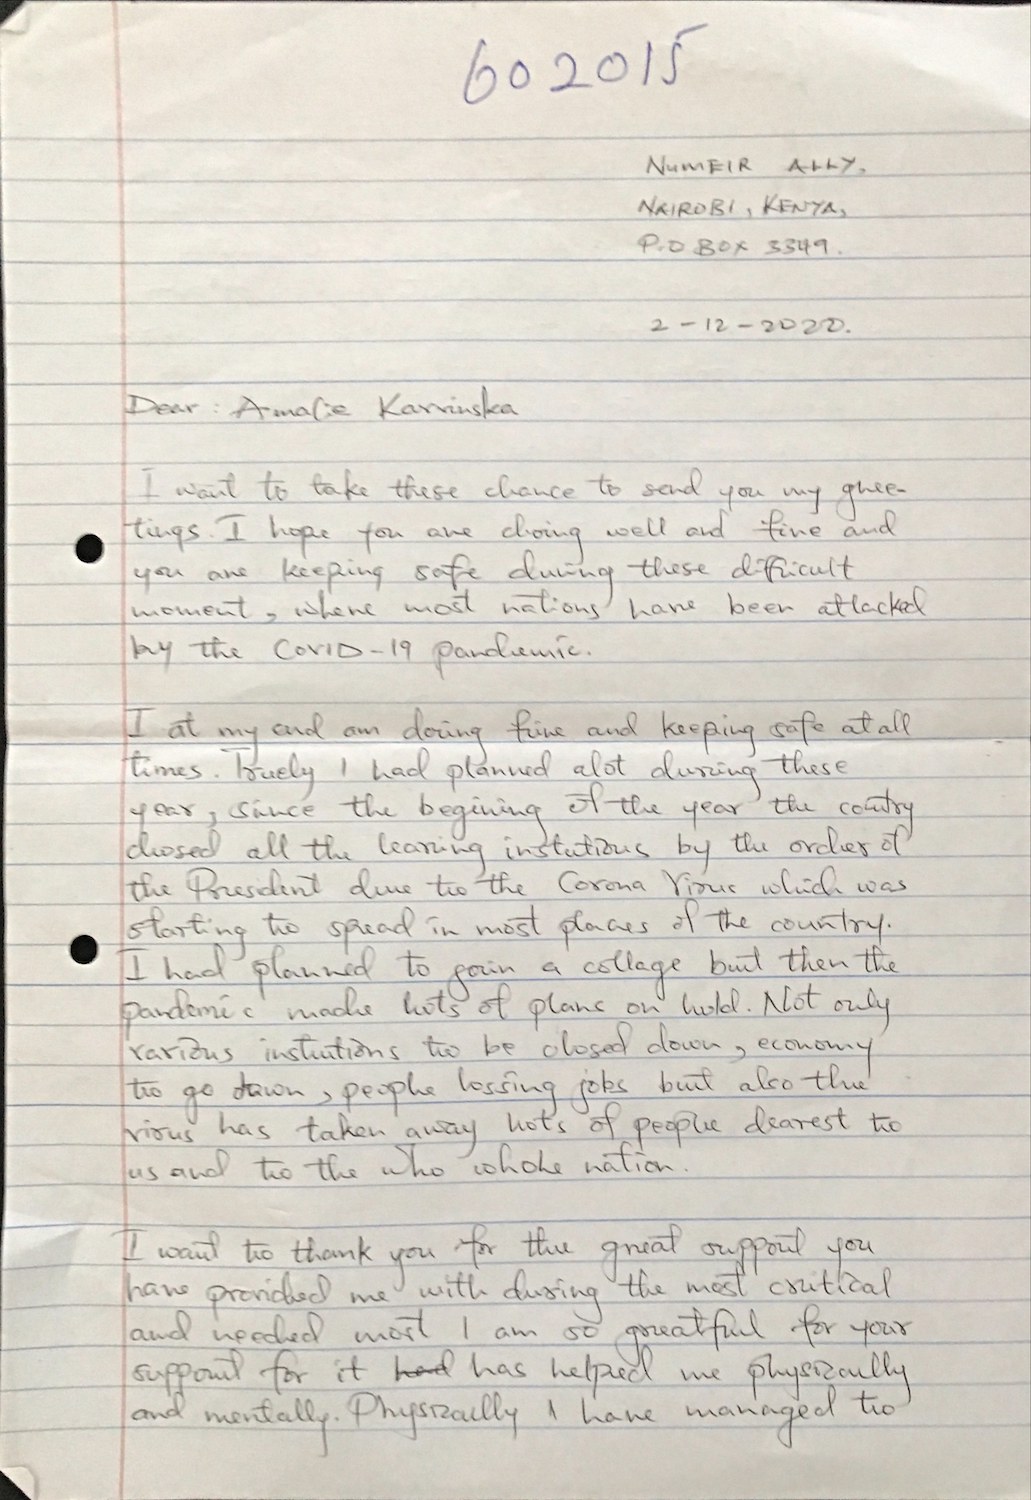 602015
NUMEIR ALLY,
NAIROBI, KENYA,
P.O BOX 3349.
2-12-2020.
Dear: Amalie Karvinska
I want to take these chance to send you my ghee-
tings. I hope you are doing well and fine and
you are keeping safe during these difficult
moment, where most nations have been attacked
by the COVID-19 pandemic.
I at my end am doing fine and keeping safe at all
times. Truely I had planned alot during these
year, since the begining of the year the coutry
closed all the learing instutions by the order of
the President due to the Corona Virus which was
starting to spread in most places of the country.
I had planned to join a collage but then the
pandemic made lots of plans on hold. Not only
various instutions to be closed down, economy
to go down, people lossing jobs but also the
virus has taken away lots of people dearest to
us and to the who whole nation.
I want to thank you for the great support you
have provided me with during the most critical
and needed most I am so greatful for your
support for it had has helped me physically
and mentally. Physically I have managed to